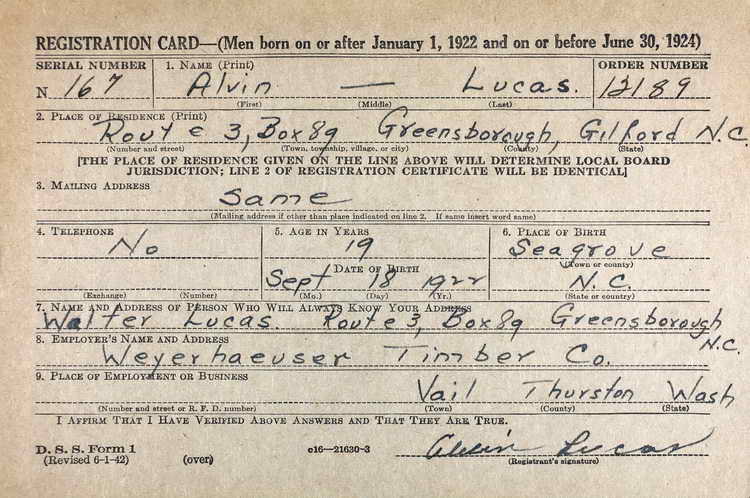 REGISTRATION CARD—(Men born on or after January 1, 1922 and on or before June 30, 1924)
SERIAL NUMBER 1. NAME (Print) ORDER NUMBER
N 167 Alvin — Lucas. 12189
(First) (Middle) (Last)
2. PLACE OF RESIDENCE (Print)
Route 3, Box 89 Greensborough, Gilford N.C.
(Number and street) (Town, township, village, or city) (County) (State)
[THE PLACE OF RESIDENCE GIVEN ON THE LINE ABOVE WILL DETERMINE LOCAL BOARD
JURISDICTION; LINE 2 OF REGISTRATION CERTIFICATE WILL BE IDENTICAL]
3. MAILING ADDRESS
Same
(Mailing address if other than place indicated on line 2. If same insert word same)
4. TELEPHONE 5. AGE IN YEARS 6. PLACE OF BIRTH
No 19 Seagrove
DATE OF BIRTH (Town or county)
Sept 18 1922 N.C.
(Exchange) (Number) (Mo.) (Day) (Yr.) (State or country)
7. NAME AND ADDRESS OF PERSON WHO WILL ALWAYS KNOW YOUR ADDRESS
Walter Lucas. Route 3, Box 89 Greensborough
N.C.
8. EMPLOYER'S NAME AND ADDRESS
Weyerhaeuser Timber Co.
9. PLACE OF EMPLOYMENT OR BUSINESS
Vail Thurston Wash
(Number and street or R. F. D. number) (Town) (County) (State)
I AFFIRM THAT I HAVE VERIFIED ABOVE ANSWERS AND THAT THEY ARE TRUE.
D. S. S. Form 1
(Revised 6-1-42) (over) c16—21630-3 Alvin Lucas
(Registrant's signature)